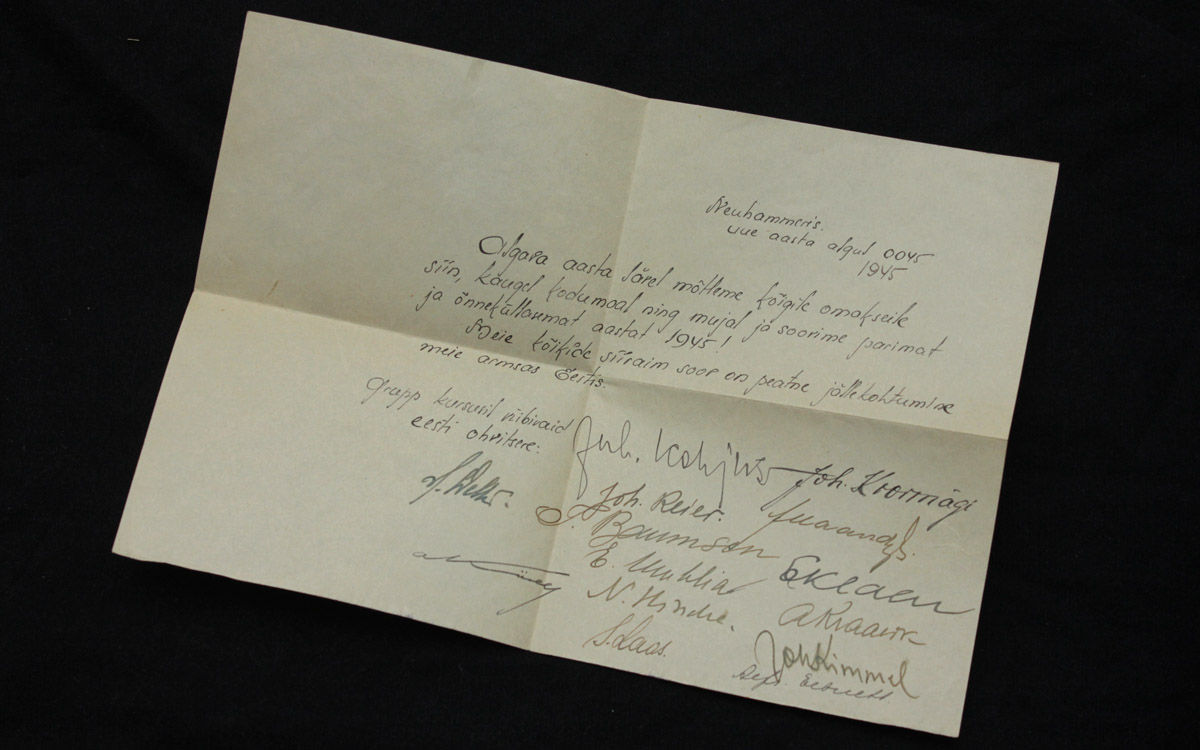 Neuhammeris.
uue aasta algul 0045
1945
Algava aasta lävel mõtleme kõigile omakseile
siin, kaugel kodumaal ning mujal ja soovime parimat
ja õnneküllasemat aastat 1945!
Meie kõikide siiraim soov on peatne jällekohtumine
meie armsas Eestis.
Grupp kursusil viibivaid
eesti ohvitsere:
Joh. Koormägi
Joh. Reier.
Baumson
E.
N. Hindre.
S. Laas.
Joh Kimmel